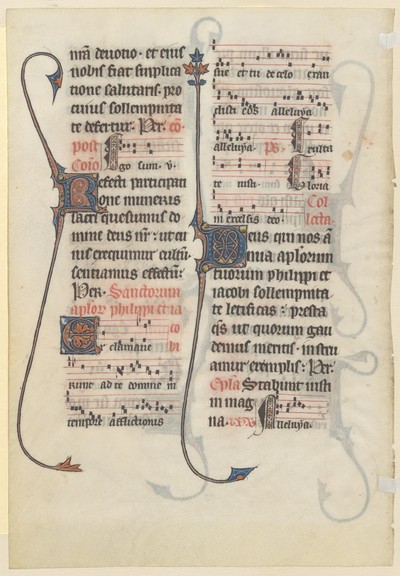 nr̄a deuotio · et eius
nobis fiat supplica
tione salutaris pro
cuius sollempnita
te defertur · Per · cō
post
Coīo Ego sum · v̄ ·
Refecti participati
one muneris
sacri quesumus do
mine deus nr̄ : ut cu
ius exequimur cultū
sentiamus effectū ·
Per · Sanctorum
aplor philippi et ia
cobi
Exclamaue
runt ad te domine in
tempore afflictionis
sue et tu de celo exau
disti eos alleluya
alleluya · Ps · Exulta
te iusti · Gloria
in excelsis deo · Col
lecta ·
Deus qui nos ā
nua aplorum
tuorum philippi et
iacobi sollempnita
te letificas : presta
qs̄ ut quorum gau
demus meritis · instru
amur exemplis : Per ·
Epla Stabunt iusti
in mag
na · Alleluya ·